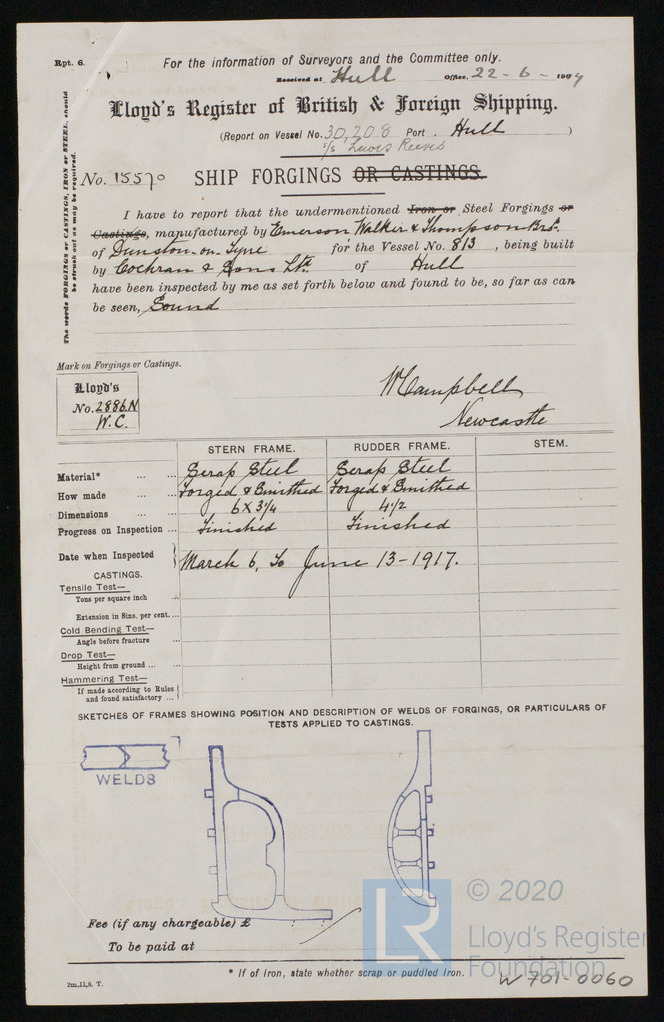 Rpt. 6.
For the information of Surveyors and the Committee only.
Received at Hull Office, 22-6-
Lloyd's Register of British & Foreign Shipping.
(Report on Vessel No. 30,208 Port. Hull )
s/s Lewis Reeves
No. 15570 SHIP FORGINGS OR CASTINGS.
The words FORGINGS or CASTINGS, IRON or STEEL, should
be struck out as may be required.
I have to report that the undermentioned Iron or Steel Forgings or
Castings, manufactured by Emerson Walker & Thompson Bros.
of Dunston-on-Tyne for the Vessel No. 813, being built
by Cochran & Sons Ltd. of Hull
have been inspected by me as set forth below and found to be, so far as can
be seen, Sound
Mark on Forgings or Castings.
Lloyd's
No. 2886.N
W.C.
W Campbell
Newcastle
STERN FRAME. RUDDER FRAME. STEM.
Material* ... ... Scrap Steel Scrap Steel
How made ... ... Forged & Smithed Forged & Smithed
Dimensions ... ... 6 X 3 1/4 4 1/2
Progress on Inspection ... Finished Finished
Date when Inspected March 6, to June 13-1917.
CASTINGS.
Tensile Test—
Tons per square inch ...
Extension in 8ins. per cent....
Cold Bending Test—
Angle before fracture ...
Drop Test—
Height from ground ... ...
Hammering Test—
If made according to Rules
and found satisfactory ...
SKETCHES OF FRAMES SHOWING POSITION AND DESCRIPTION OF WELDS OF FORGINGS, OR PARTICULARS OF
TESTS APPLIED TO CASTINGS.
WELDS
Fee (if any chargeable) £
To be paid at
* If of Iron, state whether scrap or puddled Iron.
2m,11,8. T.
LR
© 2020
Lloyd's Register
Foundation
W701-0060